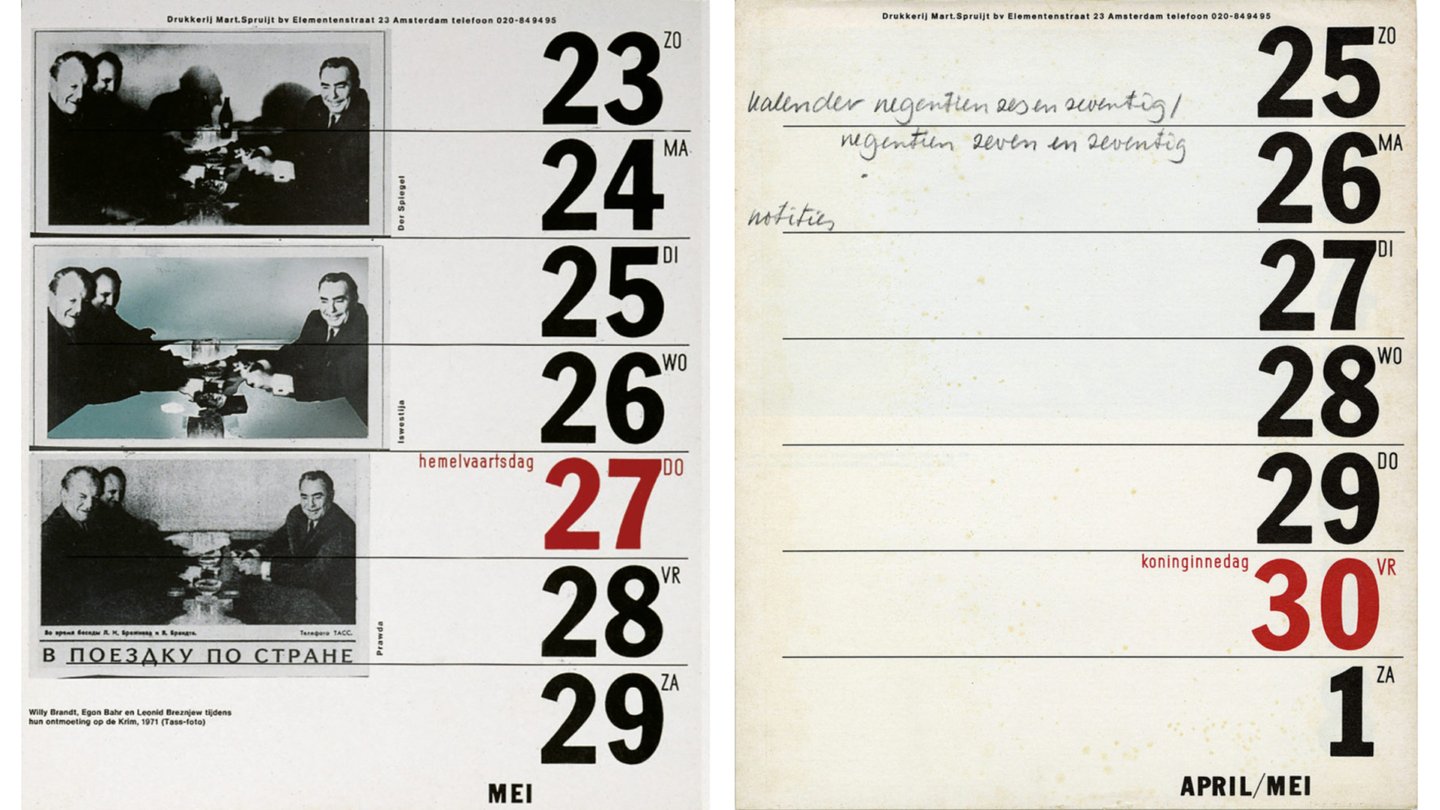 Drukkerij Mart.Spruijt bv Elementenstraat 23 Amsterdam telefoon 020-849495
23 ZO
24 MA
Der Spiegel
25 DI
26 WO
Iswestija
hemelvaartsdag
27 DO
28 VR
Во время беседы Л. И. Брежнева и В. Брандта.
Телефото ТАСС.
В ПОЕЗДКУ ПО СТРАНЕ
Prawda
29 ZA
Willy Brandt, Egon Bahr en Leonid Breznjew tijdens
hun ontmoeting op de Krim, 1971 (Tass-foto)
MEI
Drukkerij Mart.Spruijt bv Elementenstraat 23 Amsterdam telefoon 020-849495
25 ZO
kalender negentien zes en zeventig/
26 MA
negentien zeven en zeventig
notities
27 DI
28 WO
29 DO
koninginnedag
30 VR
1 ZA
APRIL/MEI